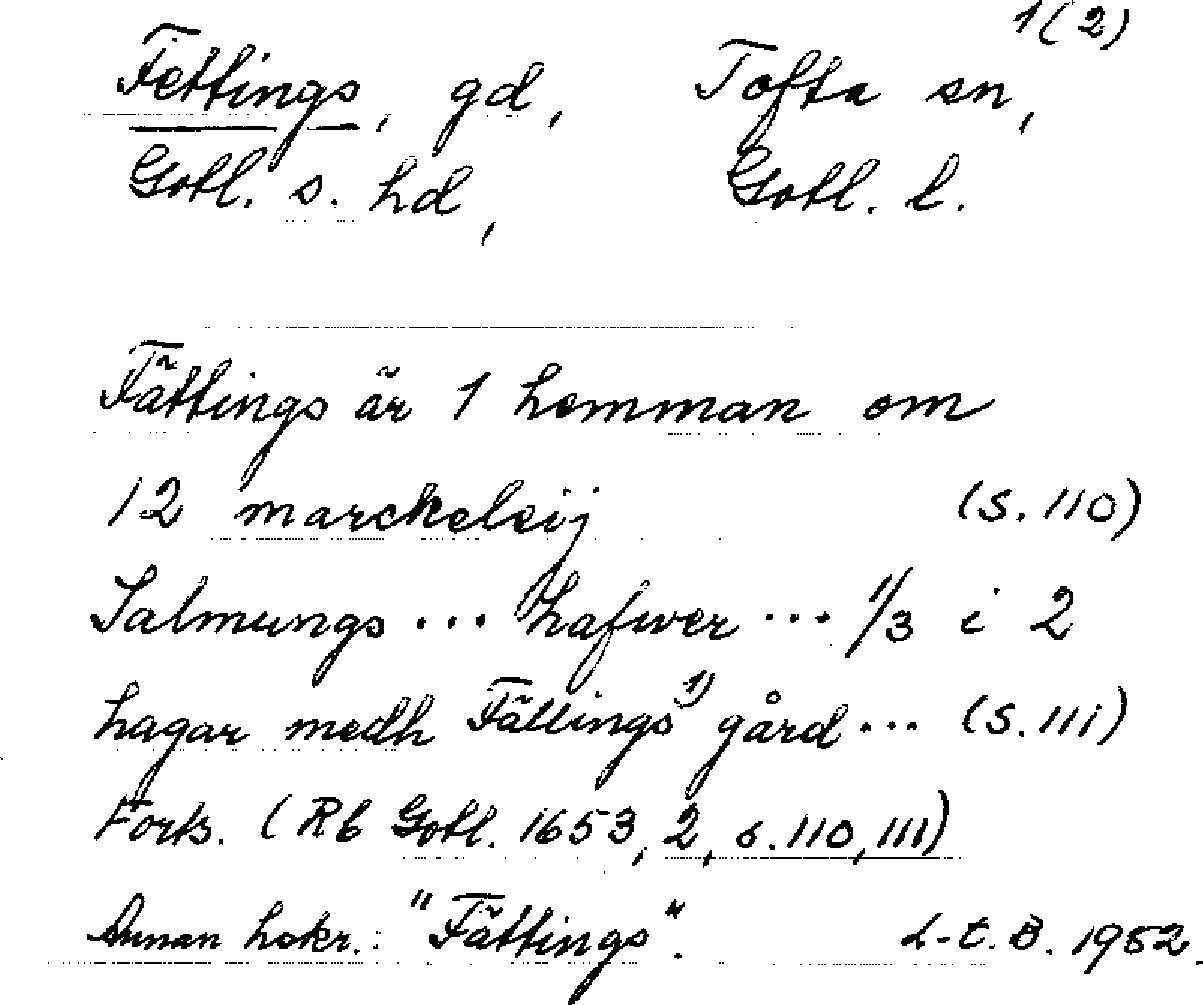 1(2)
Fettings, gd, Tofta sn,
Gotl. s. hd, Gotl. l.
Fättings är 1 hemman om
12 marckeleij (S. 110)
Salmungs ... hafwer ... 1/3 i 2
hagar medh Fättings 1) gård ... (S. 111)
Forts. (Rb Gotl. 1653, 2, s. 110, 111)
Annan hskr.: "Fättings". L-t. B. 1952.